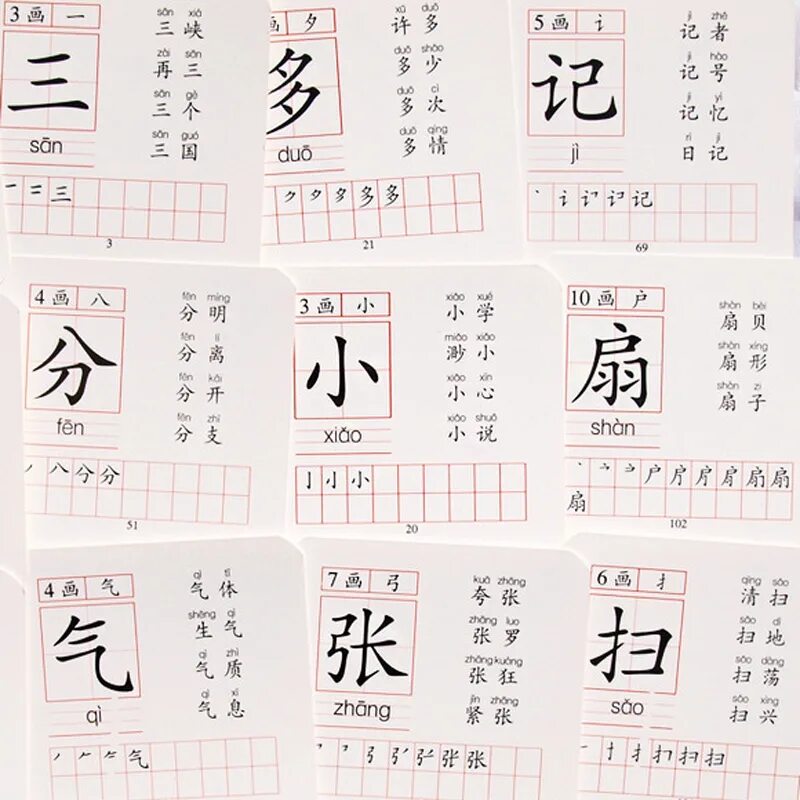 3画 一
sān xiá
三 峡
zài sān
再 三
sān gè
三 个
sān guó
三 国
三
sān
一 二 三
3
画 夕
xǔ duō
许 多
duō shǎo
多 少
duō cì
多 次
duō qíng
多 情
多
duō
多 多
21
5画 讠
jì zhě
记 者
jì hào
记 号
jì yì
记 忆
rì jì
日 记
记
jì
丶 讠 记
69
4画 八
fēn míng
分 明
fēn lí
分 离
fēn kāi
分 开
fēn zhī
分 支
分
fēn
丿 八 分 分
51
3画 小
xiǎo xué
小 学
miǎo xiǎo
渺 小
xiǎo xīn
小 心
xiǎo shuō
小 说
小
xiǎo
亅 小 小
20
10画 户
shàn bèi
扇 贝
shàn xíng
扇 形
shàn zi
扇 子
扇
shàn
户 扇 扇
扇
102
4画 气
qì tǐ
气 体
shēng qì
生 气
qì zhì
气 质
qì xī
气 息
气
qì
丿 气
7画 弓
kuā zhāng
夸 张
zhāng luo
张 罗
zhāng kuáng
张 狂
jǐn zhāng
紧 张
张
zhāng
弓 张 张
6画 扌
qīng sǎo
清 扫
sǎo dì
扫 地
sǎo dàng
扫 荡
sǎo xìng
扫 兴
扫
sǎo
一 扌 扫 扫